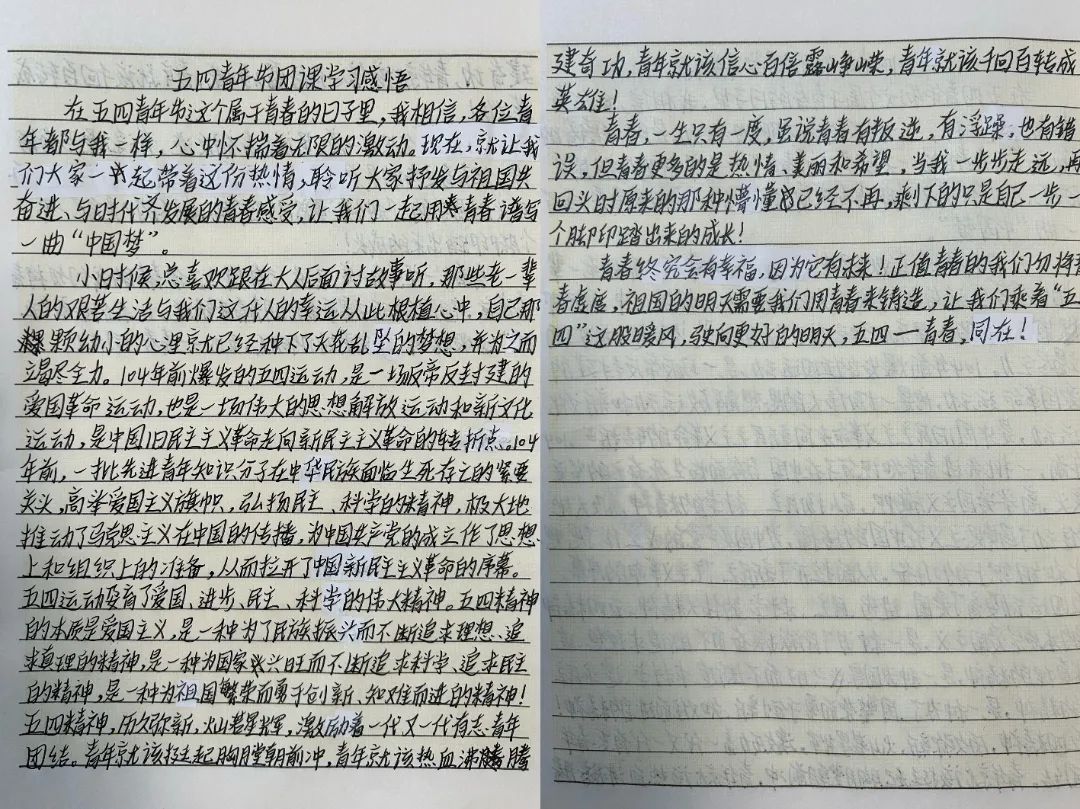 五四青年节团课学习感悟
在五四青年节这个属于青春的日子里,我相信,各位青
年都与我一样,心中怀揣着无限的激动。现在,就让我
们大家一起带着这份热情,聆听大家抒发与祖国共
奋进、与时代齐发展的青春感受,让我们一起用青春谱写
一曲“中国梦”。
小时候,总喜欢跟在大人后面讨故事听,那些老一辈
人的艰苦生活与我们这代人的幸运从此根植心中,自己那
颗幼小的心里就已经种下了天花乱坠的梦想,并为之而
竭尽全力。104年前爆发的五四运动,是一场反帝反封建的
爱国革命运动,也是一场伟大的思想解放运动和新文化
运动,是中国旧民主主义革命走向新民主主义革命的转折点。104
年前,一批先进青年知识分子在中华民族面临生死存亡的紧要
关头,高举爱国主义旗帜,弘扬民主、科学的精神,极大地
推动了马克思主义在中国的传播,为中国共产党的成立作了思想
上和组织上的准备,从而拉开了中国新民主主义革命的序幕。
五四运动孕育了爱国、进步、民主、科学的伟大精神。五四精神
的本质是爱国主义,是一种为了民族振兴而不断追求理想、追
求真理的精神,是一种为国家兴旺而不断追求科学、追求民主
的精神,是一种为祖国繁荣而勇于创新、知难而进的精神!
五四精神,历久弥新,灿若星辉,激励着一代又一代有志青年
团结。青年就该挺起胸膛朝前冲,青年就该热血沸腾
建奇功,青年就该信心百倍露峥嵘,青年就该千回百转成
英雄!
青春,一生只有一度,虽说青春有叛逆,有浮躁,也有错
误,但青春更多的是热情、美丽和希望,当我一步步走远,再
回头时原来的那种懵懂已经不再,剩下的只是自己一步一
个脚印踏出来的成长!
青春终究会有幸福,因为它有未来!正值青春的我们勿将青
春虚度,祖国的明天需要我们用青春来铸造,让我们乘着“五
四”这股暖风,驶向更好的明天,五四一青春,同在!